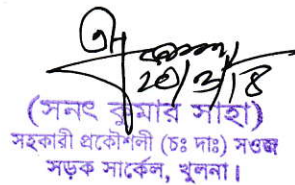 20/3/18
(সনৎ কুমার সাহা)
সহকারী প্রকৌশলী (চঃ দাঃ) সওজ
সড়ক সার্কেল, খুলনা।